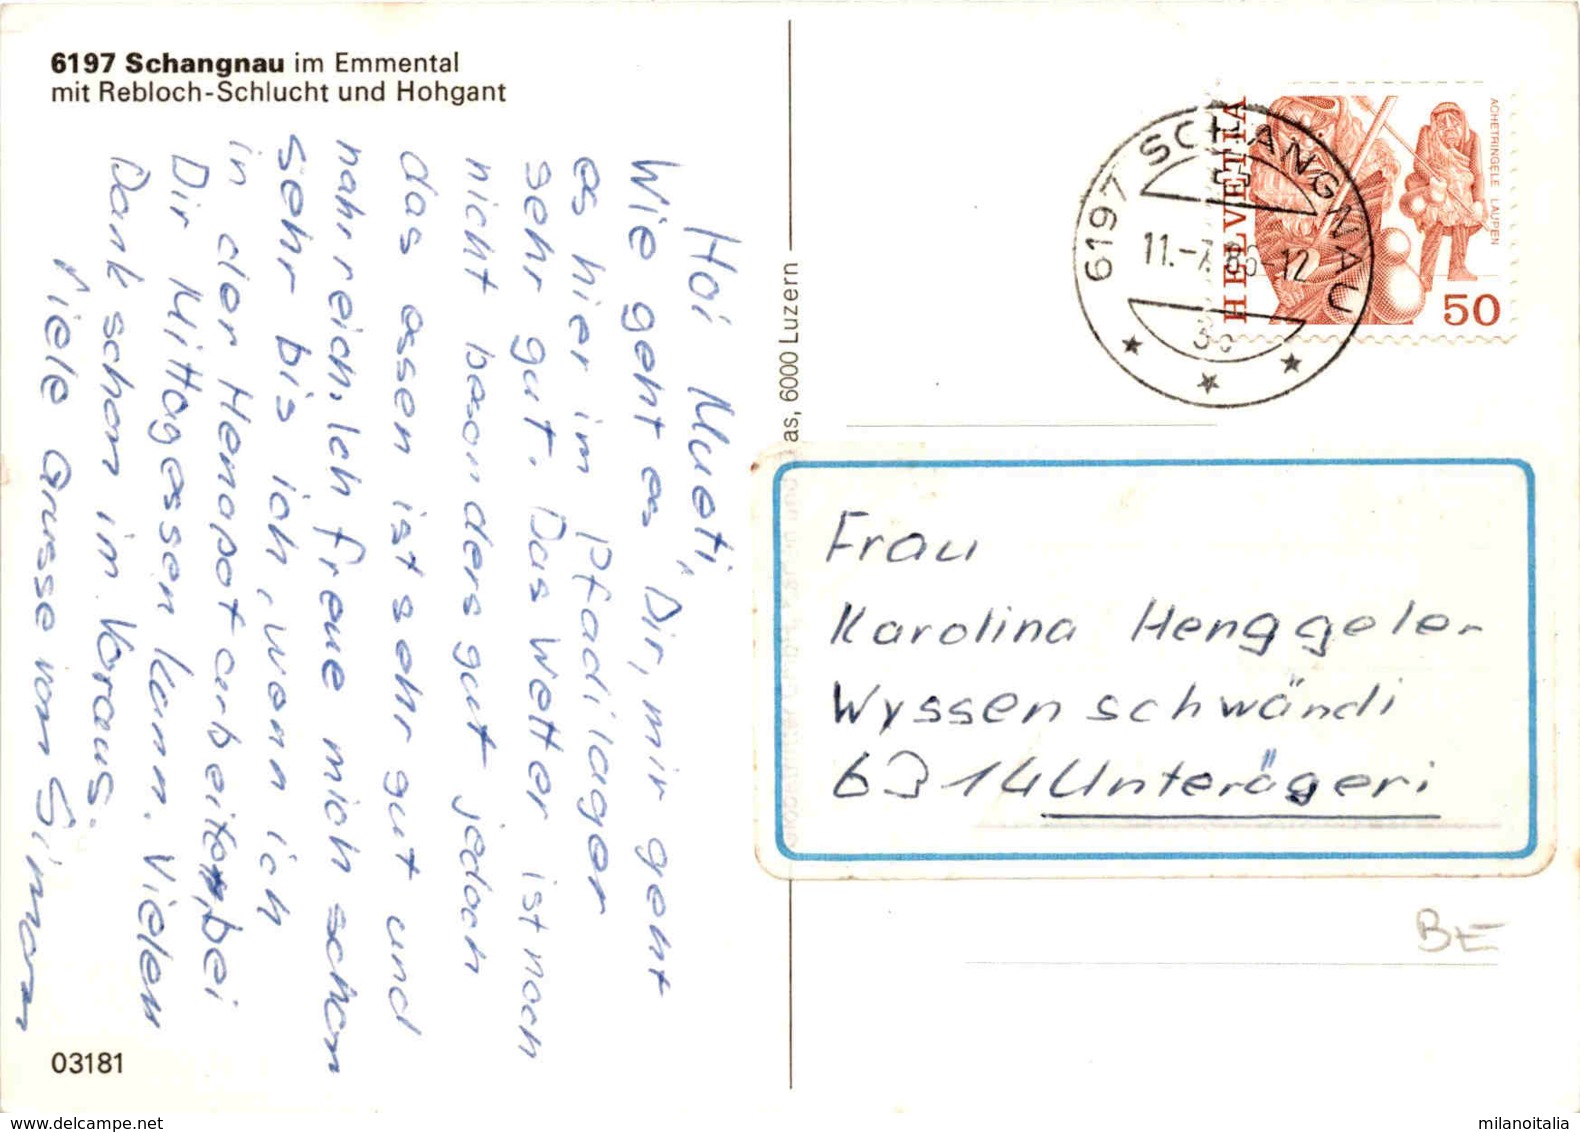 6197 Schangnau im Emmental
mit Rebloch-Schlucht und Hohgant
Hoi Mueti,
Wie geht es Dir, mir geht
es hier im Pfadilager
sehr gut. Das Wetter ist noch
nicht besonders gut jedoch
das essen ist sehr gut und
nahrreich. Ich freue mich schon
sehr bis ich, wenn ich
in der Henapot arbeiten, bei
Dir Mittagessen kann. Vielen
Dank schon im Voraus.
Viele Grüsse vom Simon
03181
as, 6000 Luzern
6197 SCHANGNAU
11.-7.86-12
HELVETIA
ACHETRINGELE LAUPEN
50
Frau
Karolina Henggeler
Wyssenschwändi
6314 Unterägeri
BE
milanoitalia
www.delcampe.net